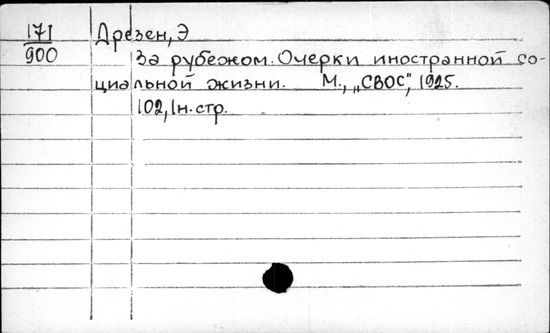 171 Дрезен, Э
900 За рубежом. Очерки иностранной со-
циальной жизни. М., „СВОС", 1925.
102, 1н. стр.